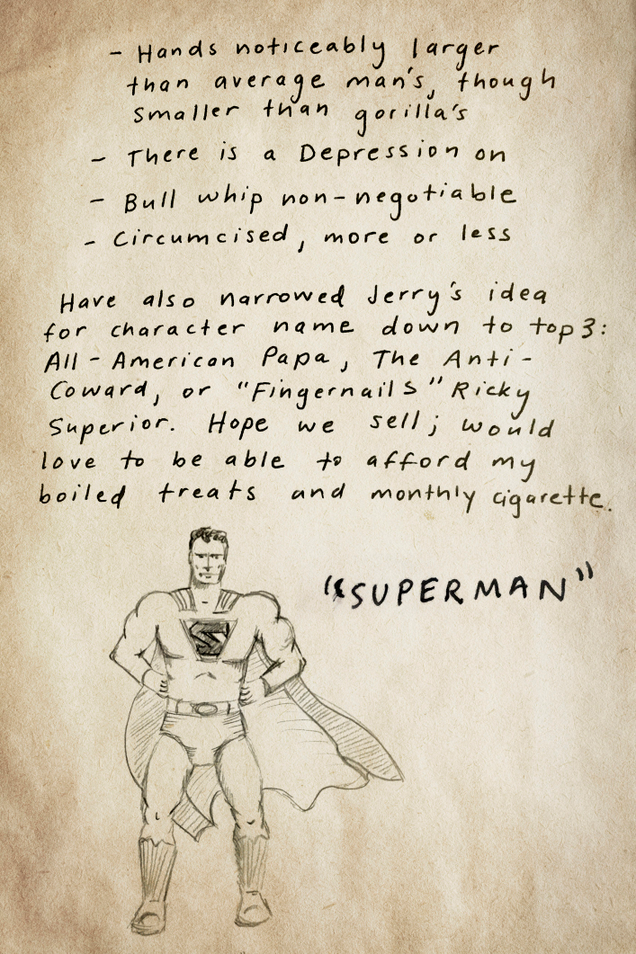 - Hands noticeably larger
than average man's, though
smaller than gorilla's
- There is a Depression on
- Bull whip non-negotiable
- Circumcised, more or less
Have also narrowed Jerry's idea
for character name down to top 3:
All-American Papa, The Anti-
Coward, or "Fingernails" Ricky
Superior. Hope we sell; would
love to be able to afford my
boiled treats and monthly cigarette.
"SUPERMAN"
S